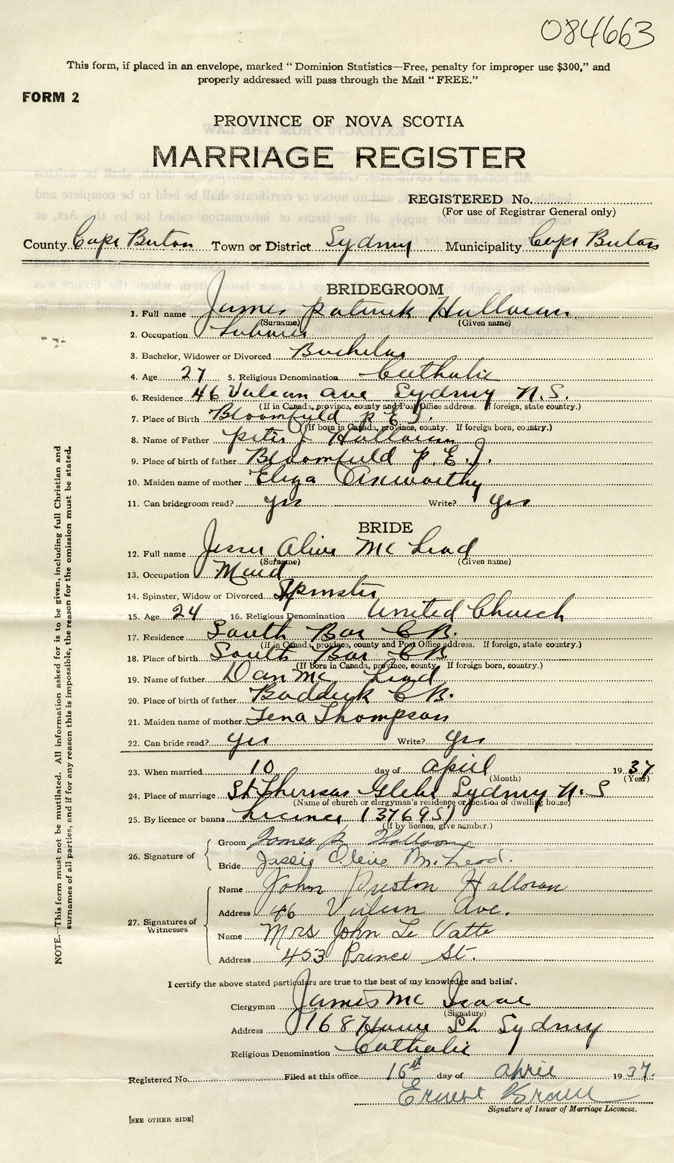 084663
This form, if placed in an envelope, marked "Dominion Statistics—Free, penalty for improper use $300," and
properly addressed will pass through the Mail "FREE."
FORM 2
PROVINCE OF NOVA SCOTIA
MARRIAGE REGISTER
REGISTERED No.
(For use of Registrar General only)
County Cape Breton Town or District Sydney Municipality Cape Breton
BRIDEGROOM
1. Full name James Patrick Halloran
(Surname) (Given name)
2. Occupation Labourer
3. Bachelor, Widower or Divorced Bachelor
4. Age 27 5. Religious Denomination Catholic
6. Residence 46 Vulcan Ave Sydney N.S.
(If in Canada, province, county and Post Office address. If foreign, state country.)
7. Place of Birth Bloomfield P.E.I.
(If born in Canada, province, county. If foreign born, country.)
8. Name of Father Peter J Halloran
9. Place of birth of father Bloomfield P.E.I.
10. Maiden name of mother Eliza
11. Can bridegroom read? yes Write? yes
BRIDE
12. Full name Jessie Olive McLeod
(Surname) (Given name)
13. Occupation Maid
14. Spinster, Widow or Divorced Spinster
15. Age 24 16. Religious Denomination United Church
17. Residence South Bar C.B.
(If in Canada, province, county and Post Office address. If foreign, state country.)
18. Place of birth South Bar C.B.
(If born in Canada, province, county. If foreign born, country.)
19. Name of father Dan McLeod
20. Place of birth of father Baddeck C.B.
21. Maiden name of mother Tena Thompson
22. Can bride read? yes Write? yes
23. When married 10 day of April 1937
(Month) (Year)
24. Place of marriage St. Theresas Glebe Sydney N.S
(Name of church or clergyman's residence or location of dwelling house)
25. By licence or banns Licence (37695)
(If by licence, give number.)
26. Signature of Groom James P. Halloran
Bride Jessie Olive McLeod.
27. Signatures of Witnesses
Name John Preston Halloran
Address 46 Vulcan Ave.
Name Mrs John Le Vatte
Address 453 Prince St.
I certify the above stated particulars are true to the best of my knowledge and belief.
Clergyman James Mc Isaac
(Signature)
Address 168 Howe St Sydney
Religious Denomination Catholic
Registered No. Filed at this office 16th day of April 1937.
Ernest Brown
Signature of Issuer of Marriage Licences.
[SEE OTHER SIDE]
NOTE.—This form must not be mutilated. All information asked for is to be given, including full Christian and
surnames of all parties, and if for any reason this is impossible, the reason for the omission must be stated.